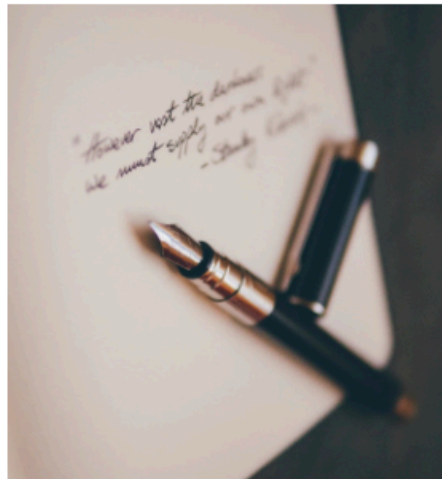 "However vast the darkness
we must supply our own light"
-Stanley Kubrick-